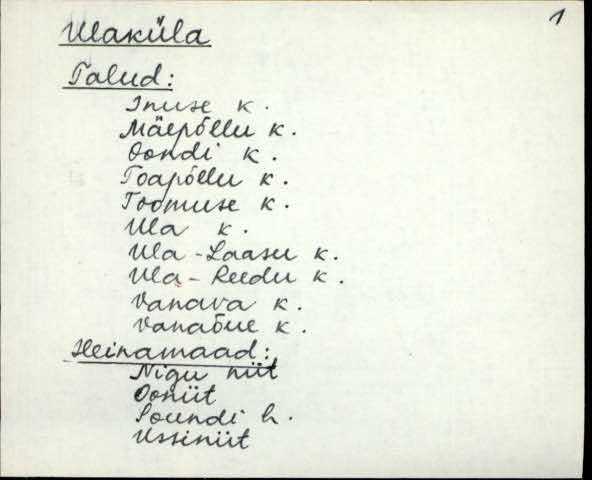 1
Ulaküla
Talud:
Inuse k.
Mäepõllu k.
Oondi k.
Toapõllu k.
Toomuse k.
Ula k.
Ula-Laasu k.
Ula-Reedu k.
Vanava k.
Vanaõue k.
Heinamaad:
Nigu niit
Ooniit
Soundi h.
Ussiniit